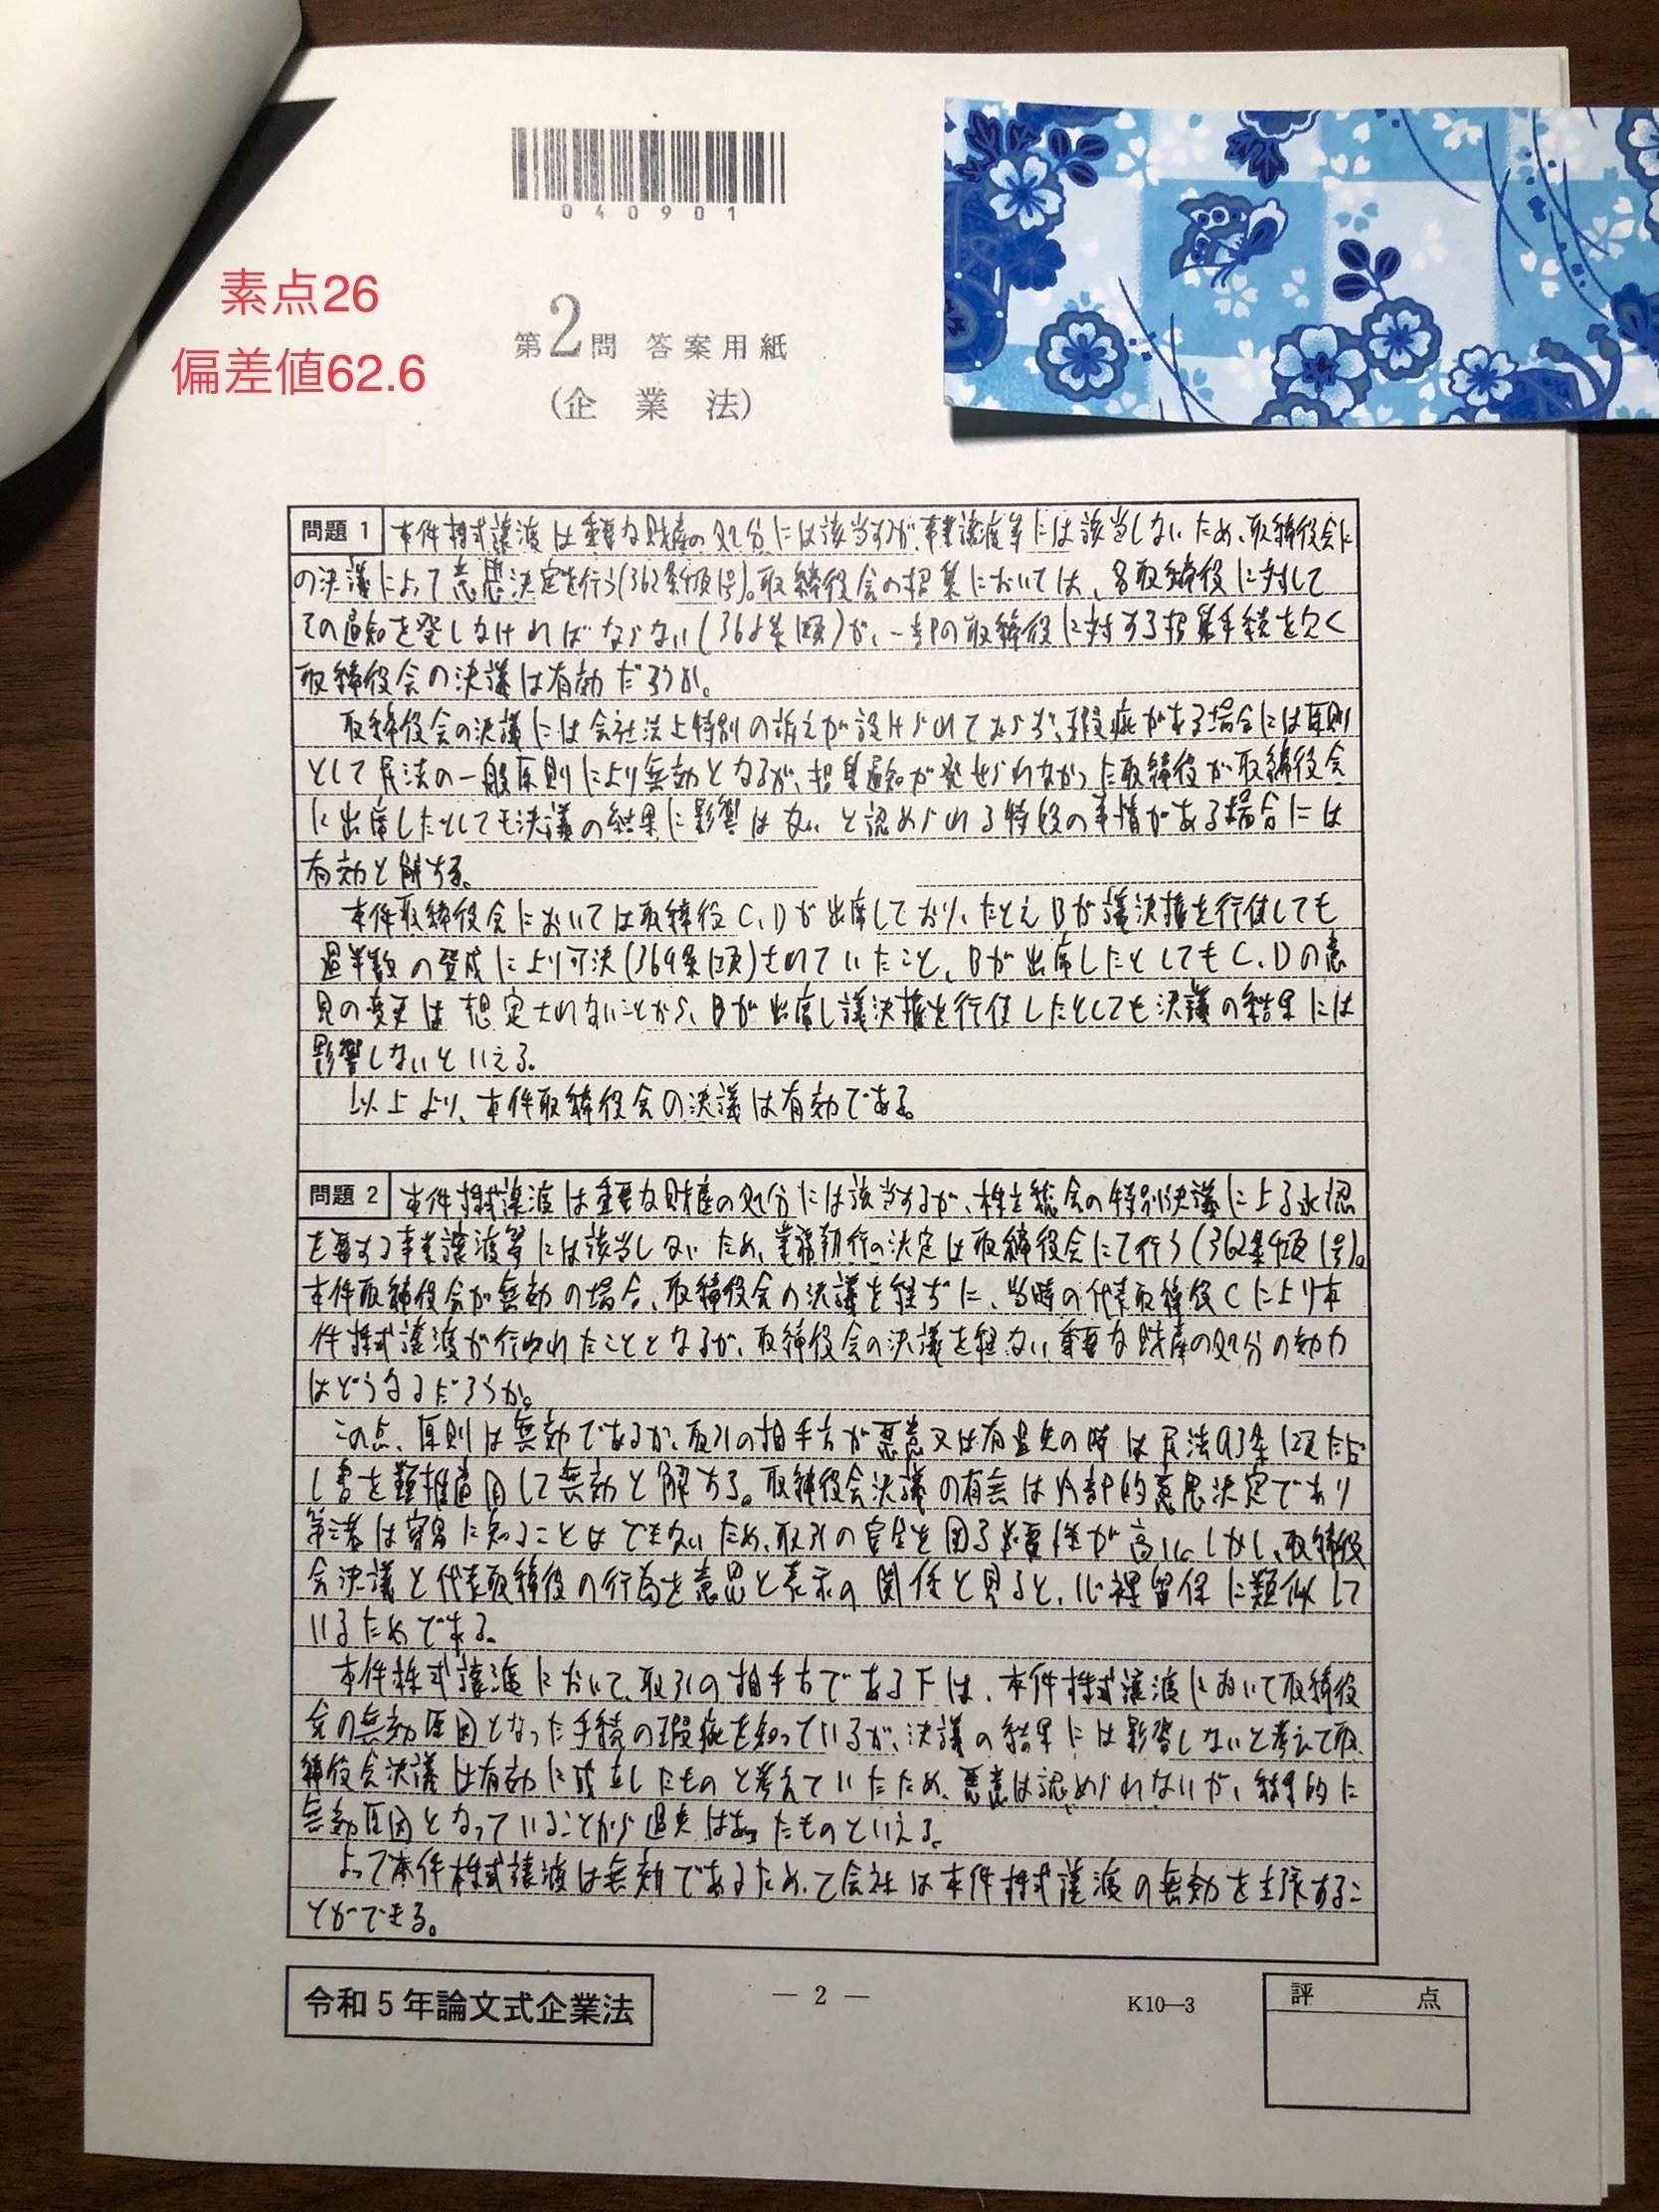 040901
素点26
偏差値62.6
第2問 答案用紙
(企業法)
問題 1 本件株式譲渡は重要な財産の処分には該当するが、事業譲渡等には該当しないため、取締役会に
の決議によって意思決定を行う(362条4項1号)。取締役会の招集においては、各取締役に対して
その通知を発しなければならない(368条1項)が、一部の取締役に対する招集手続を欠く
取締役会の決議は有効だろうか。
取締役会の決議には会社法上特別の訴えが設けられておらず、瑕疵がある場合には原則
として民法の一般原則により無効となるが、招集通知が発せられなかった取締役が取締役会
に出席したとしても決議の結果に影響はないと認められる特段の事情がある場合には
有効と解する。
本件取締役会においては取締役C、Dが出席しており、たとえBが議決権を行使しても
過半数の賛成により可決(369条1項)されていたこと、Bが出席したとしてもC、Dの意
見の変更は想定されないことから、Bが出席し議決権を行使したとしても決議の結果には
影響しないといえる。
以上より、本件取締役会の決議は有効である。
問題 2 本件株式譲渡は重要な財産の処分には該当するが、株主総会の特別決議による承認
を要する事業譲渡等には該当しないため、業務執行の決定は取締役会にて行う(362条4項1号)。
本件取締役会が無効の場合、取締役会の決議を経ずに、当時の代表取締役Cにより本
件株式譲渡が行われたこととなるが、取締役会の決議を経ない重要な財産の処分の効力
はどうなるだろうか。
この点、原則は無効であるが、取引の相手方が悪意又は有過失の時は民法93条1項ただ
し書を類推適用して無効と解する。取締役会決議の有無は内部的意思決定であり
第三者は容易に知ることはできないため、取引の安全を図る必要性が高い。しかし、取締役
会決議と代表取締役の行為を意思と表示の関係と見ると、心裡留保に類似して
いるためである。
本件株式譲渡において、取引の相手方であるFは、本件株式譲渡において取締役
会の無効原因となった手続の瑕疵を知っているが、決議の結果には影響しないと考えて取
締役会決議は有効に成立したものと考えていたため、悪意は認められないが、結果的に
無効原因となっていることから過失はあったものといえる。
よって本件株式譲渡は無効であるため、乙会社は本件株式譲渡の無効を主張するこ
とができる。
令和5年論文式企業法
— 2 —
K10—3
評点